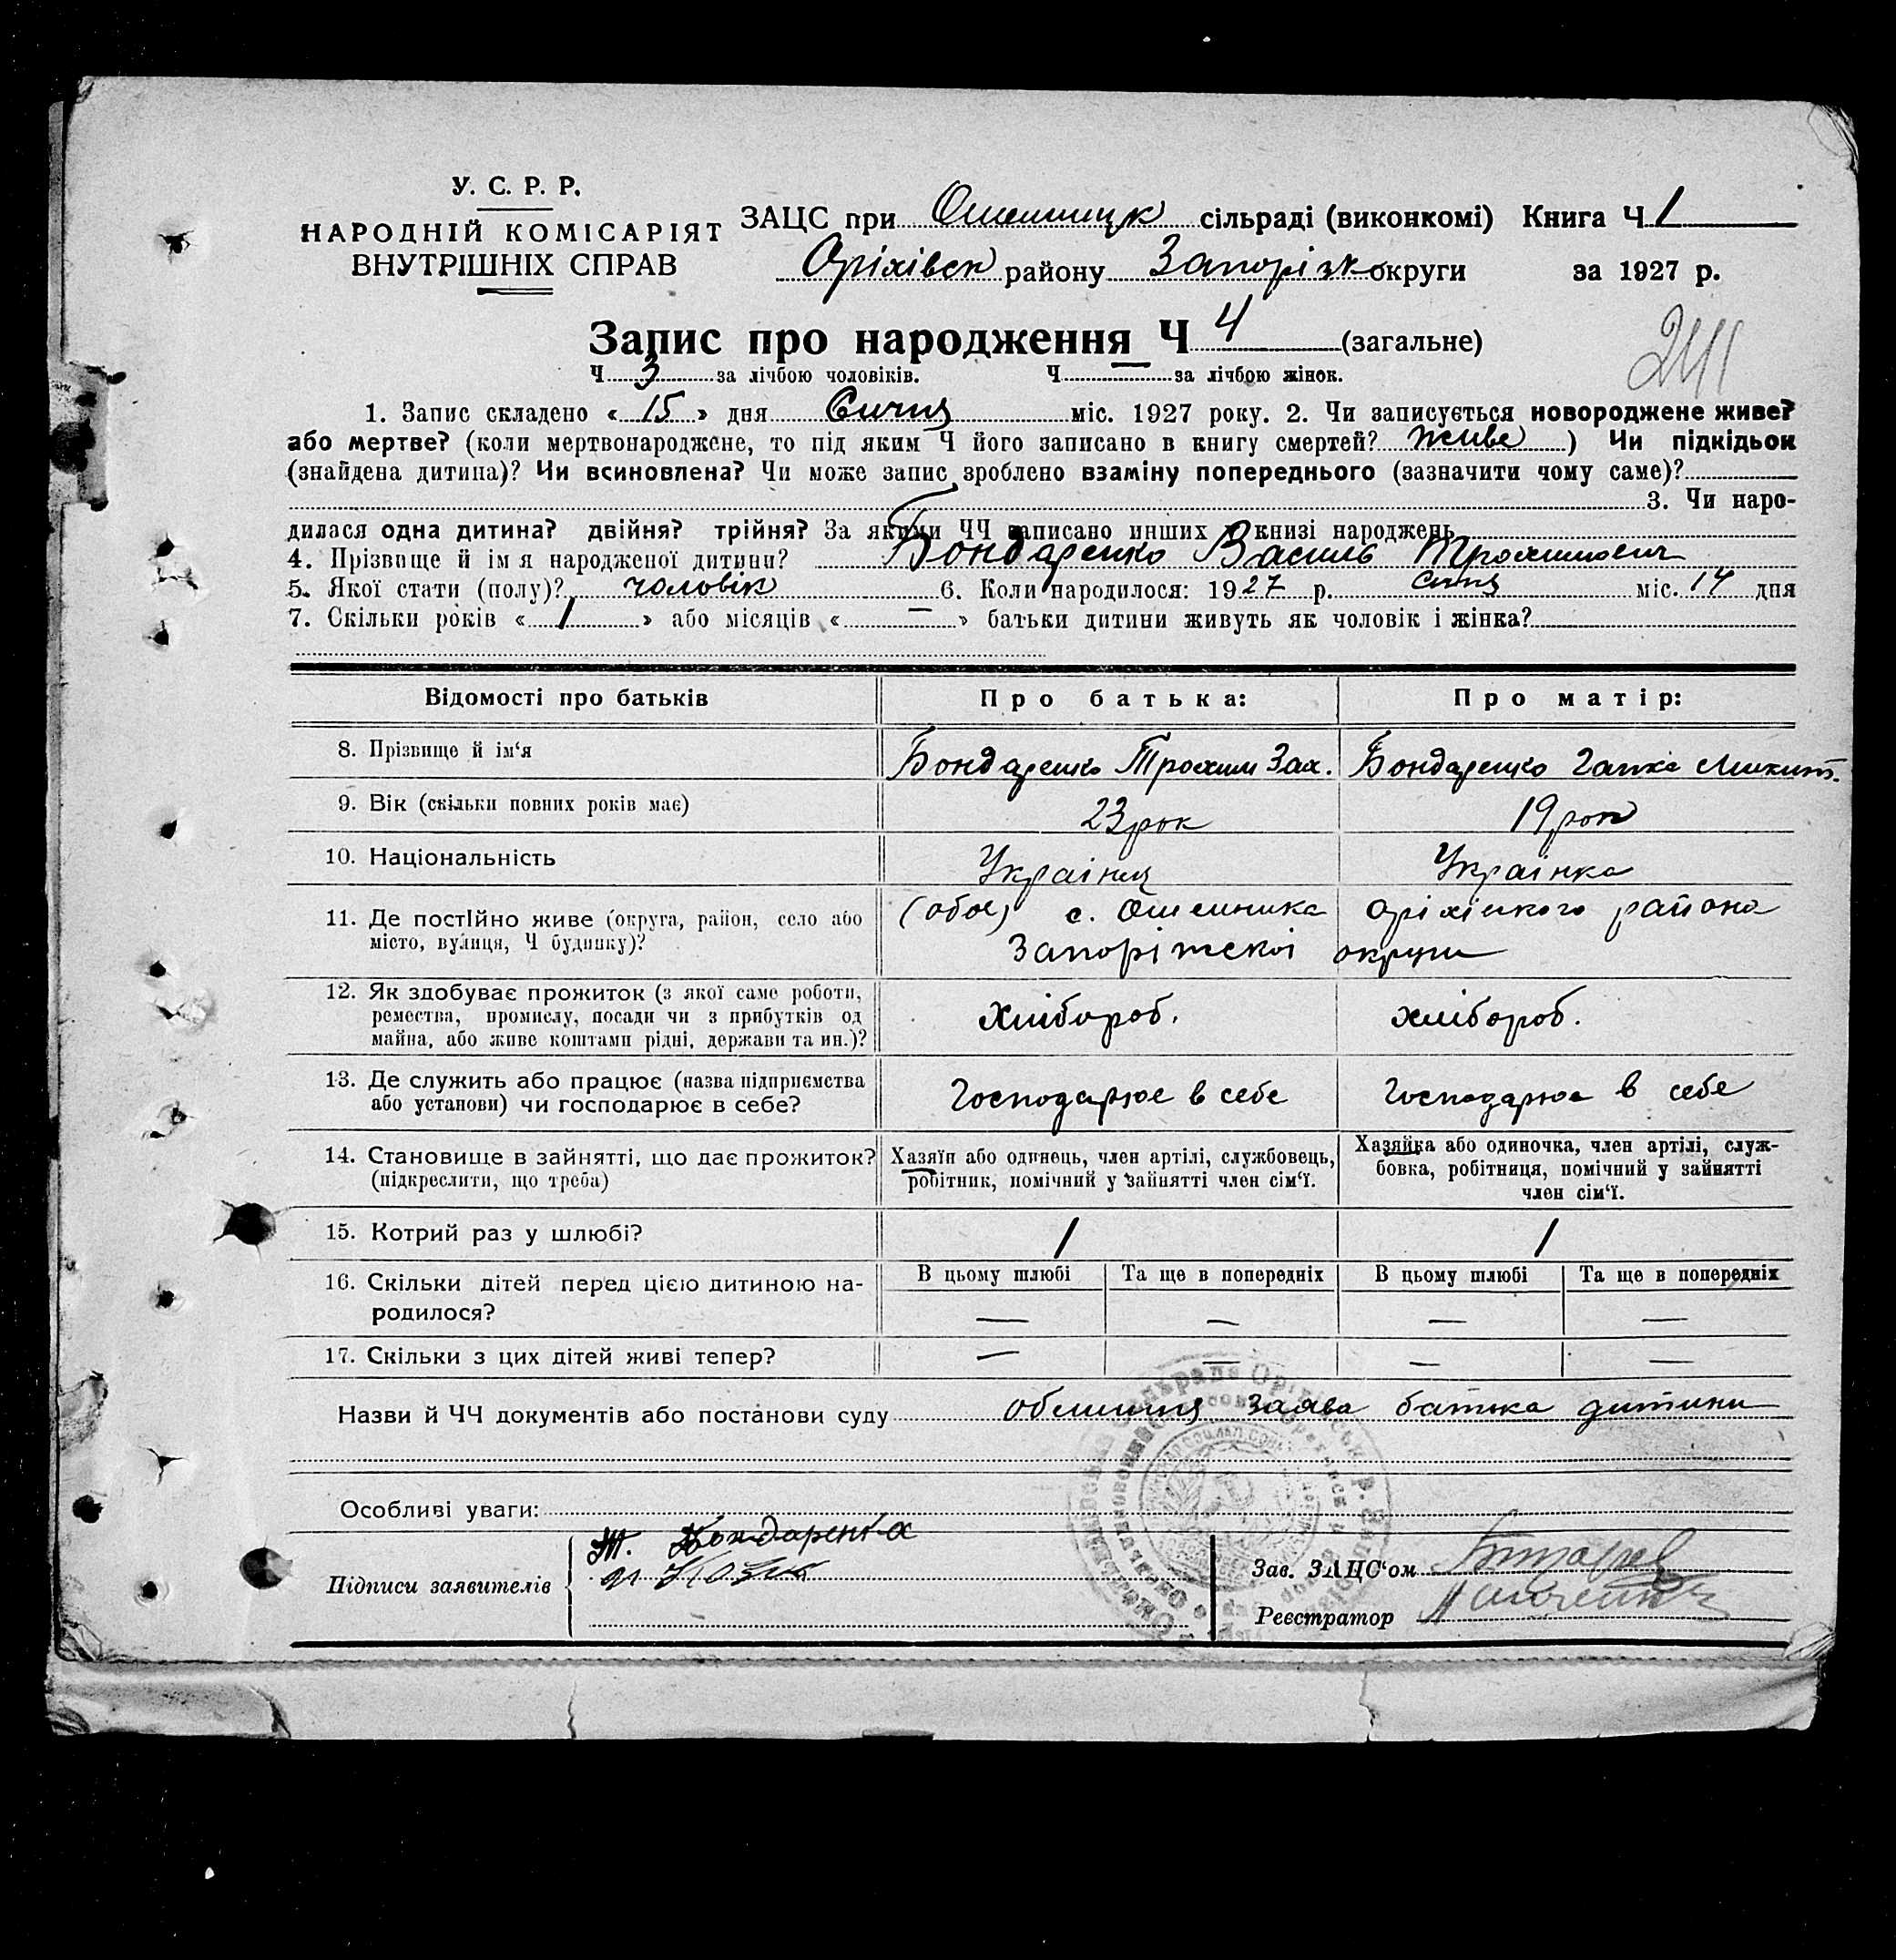 У. С. Р. Р.
НАРОДНІЙ КОМІСАРІЯТ
ВНУТРІШНІХ СПРАВ
ЗАЦС при Омельницк сільраді (виконкомі) Книга Ч 1
Оріхівск району Запорізк округи за 1927 р.
Запис про народження Ч 4 (загальне)
241
Ч 3 за лічбою чоловіків. Ч — за лічбою жінок.
1. Запис складено « 15 » дня Сичня міс. 1927 року. 2. Чи записується новороджене живе?
або мертве? (коли мертвонароджене, то під яким Ч його записано в книгу смертей? живе ) Чи підкідьок
(знайдена дитина)? Чи всиновлена? Чи може запис зроблено взаміну попереднього (зазначити чому саме)?
3. Чи наро-
дилася одна дитина? двійня? трійня? За якими ЧЧ записано инших у книзі народжень
4. Прізвище й ім я народженої дитини? Бондаренко Василь Трохимович
5. Якої стати (полу)? чоловік 6. Коли народилося: 1927 р. сичня міс. 14 дня
7. Скільки років « 1 » або місяців « — » батьки дитини живуть як чоловік і жінка?
Відомості про батьків Про батька: Про матір:
8. Прізвище й ім‘я Бондаренко Трохим Зах. Бондаренко Гапка Микит.
9. Вік (скільки повних років має) 23 рок 19 рок
10. Національність Українец Українка
11. Де постійно живе (округа, район, село або (обое) с. Омельника Оріхіцкого района
місто, вулиця, Ч будинку)? Запоріжскоі округи
12. Як здобуває прожиток (з якої саме роботи,
ремества, промислу, посади чи з прибутків од хлібороб. хлібороб.
майна, або живе коштами рідні, держави та ин.)?
13. Де служить або працює (назва підприємства
або установи) чи господарює в себе? Господарює в себе Господарює в себе
14. Становище в зайнятті, що дає прожиток? Хазяїн або одинець, член артілі, службовець, Хазяйка або одиночка, член артілі, служ-
(підкреслити, що треба) робітник, помічний у зайнятті член сім‘ї. бовка, робітниця, помічний у зайнятті
член сім‘ї.
15. Котрий раз у шлюбі? 1 1
16. Скільки дітей перед цією дитиною на- В цьому шлюбі Та ще в попередніх В цьому шлюбі Та ще в попередніх
родилося? — — — —
17. Скільки з цих дітей живі тепер? — — — —
Назви й ЧЧ документів або постанови суду заява батька дитини
Особливі уваги:
Т. Бондаренка
Підписи заявителів
Зав. ЗАЦС‘ом
Реєстратор